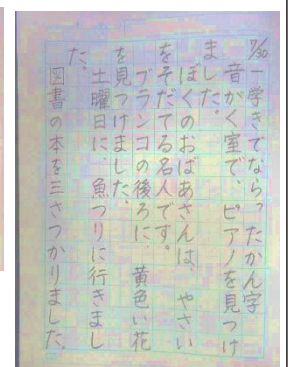 7/30 一学きでならったかん字
音がく室で、ピアノを見つけ
ました。
ぼくのおばあさんは、やさい
をそだてる名人です。
ブランコの後ろに、黄色い花
を見つけました。
土曜日に、魚つりに行きまし
た。
図書の本を三さつかりました。